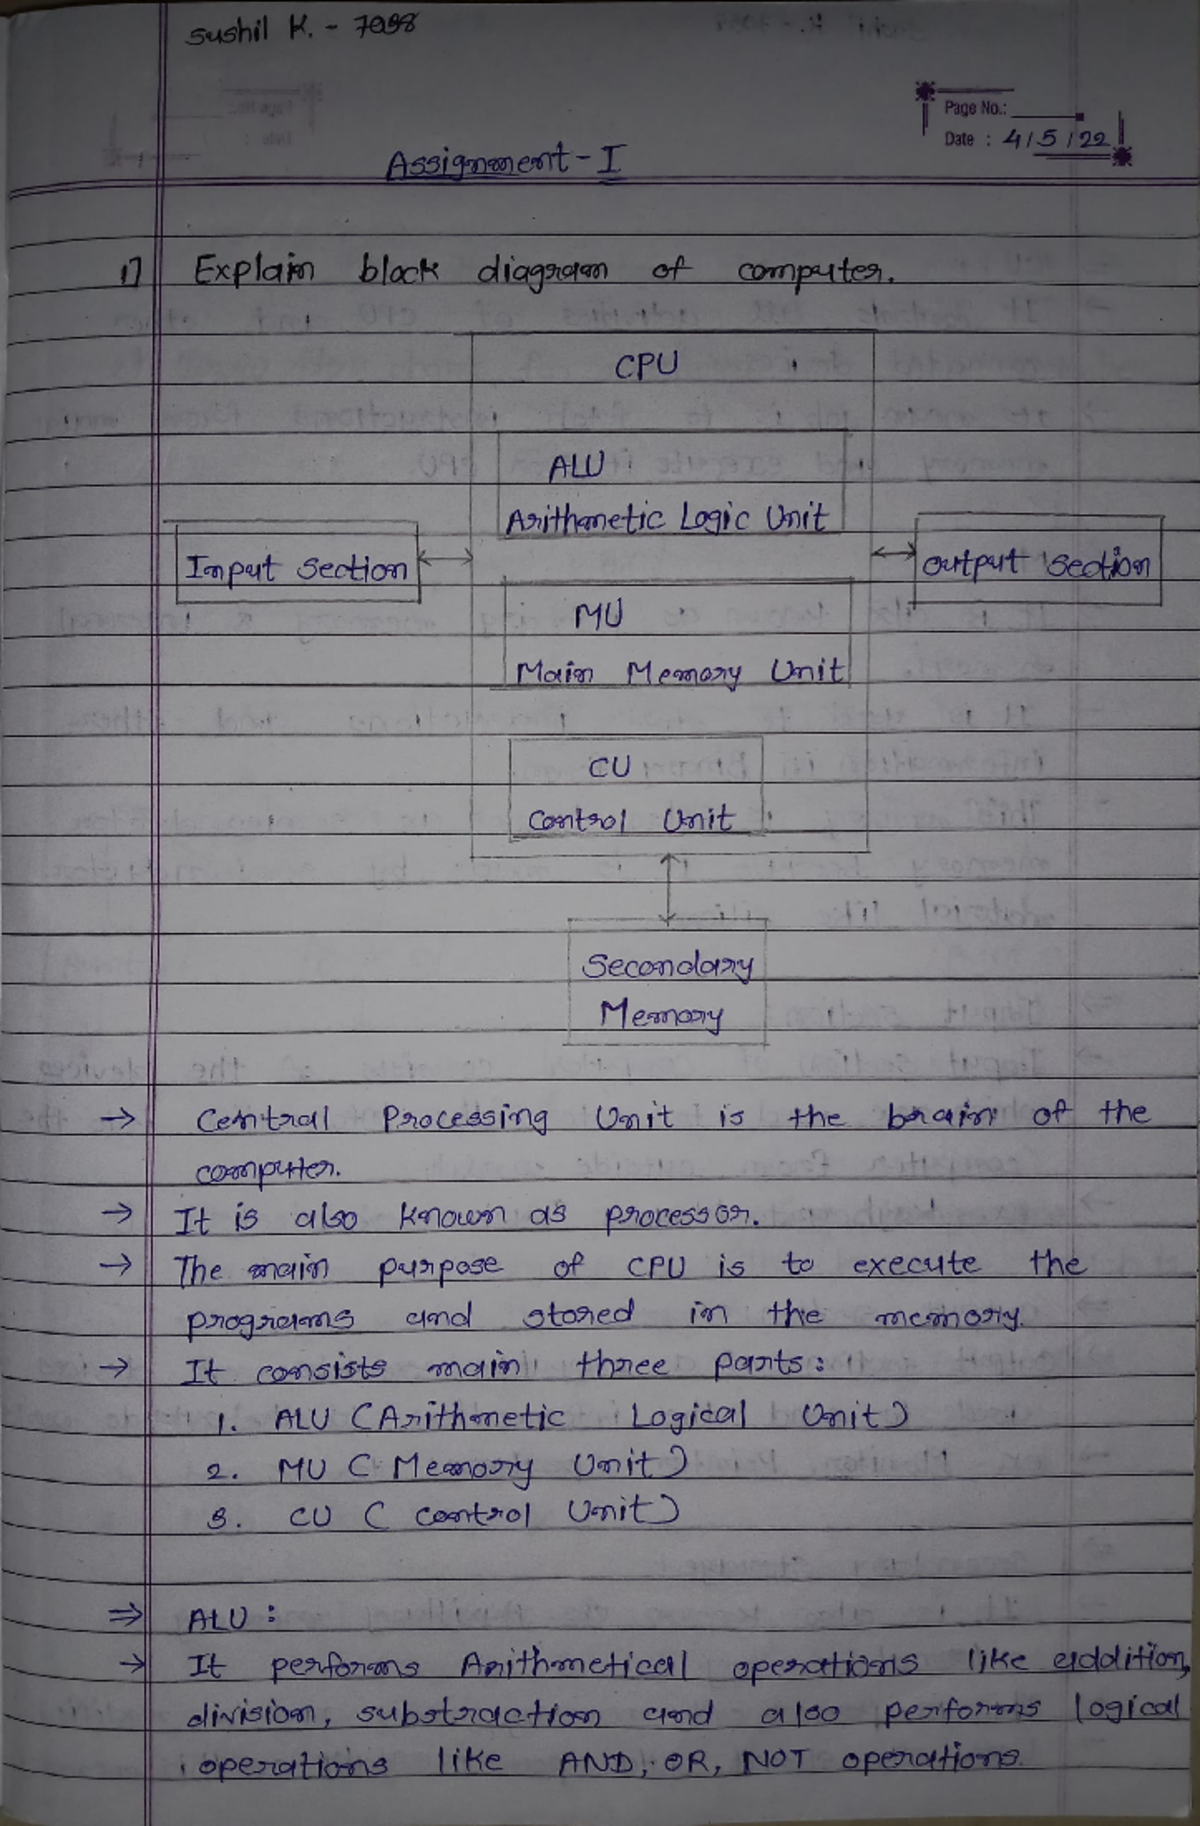 Sushil K. - 7098
Page No.:
Date : 4/5/22
Assignment - I
1] Explain block diagram of computer.
CPU
ALU
Arithmetic Logic Unit
Input Section
Output Section
MU
Main Memory Unit
CU
Control Unit
Secondary
Memory
→ Central Processing Unit is the brain of the
computer.
→ It is also known as processor.
→ The main purpose of CPU is to execute the
programs and stored in the memory.
→ It consists main three parts:
1. ALU (Arithmetic Logical Unit)
2. MU (Memory Unit)
3. CU (Control Unit)
⇒ ALU :
→ It performs Arithmetical operations like addition,
division, substraction and also performs logical
operations like AND, OR, NOT operations.